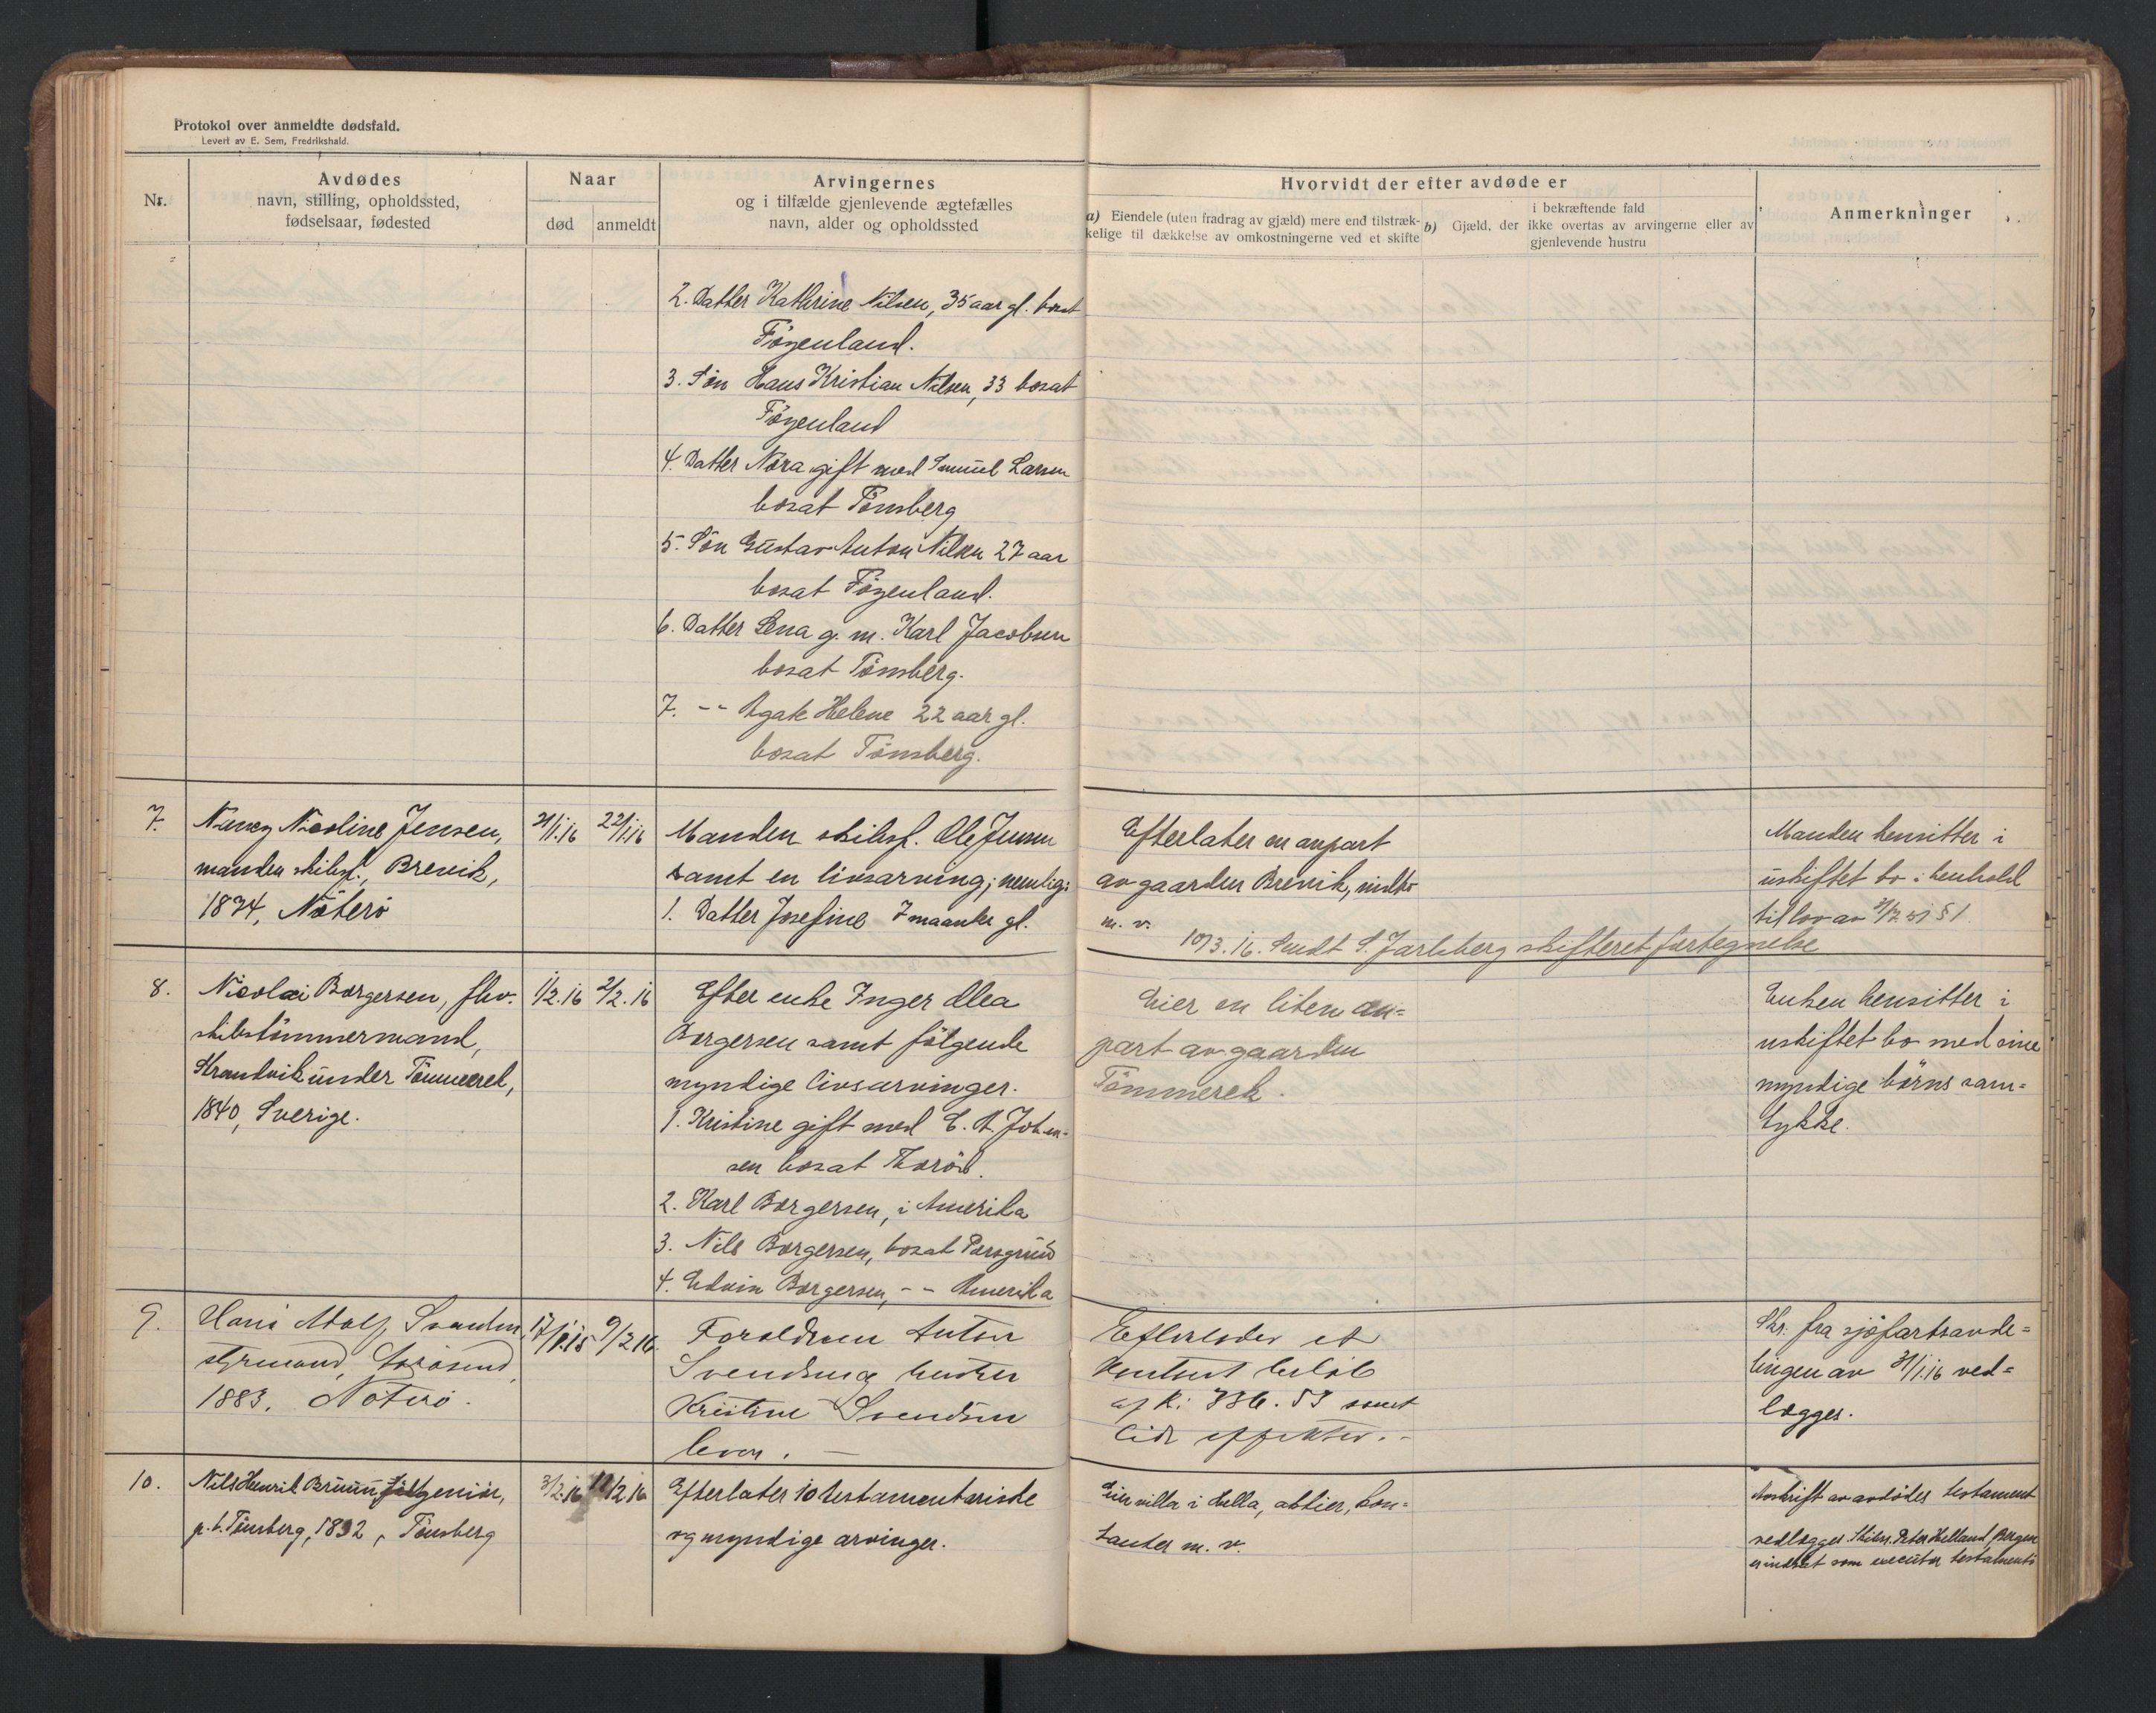 Protokol over anmeldte dødsfald.
Levert av E. Sem, Fredrikshald.
Nr.
Avdødes
navn, stilling, opholdssted,
fødselsaar, fødested
Naar
død
anmeldt
Arvingernes
og i tilfælde gjenlevende ægtefælles
navn, alder og opholdssted
Hvorvidt der efter avdøde er
a) Eiendele (uten fradrag av gjæld) mere end tilstræk-
kelige til dækkelse av omkostningerne ved et skifte
i bekræftende fald
b) Gjæld, der ikke overtas av arvingerne eller av
gjenlevende hustru
Anmerkninger
2. Datter Kathrine Nilsen, 35 aar gl. bosat
Föyenland.
3. Søn Hans Kristian Nilsen, 33 bosat
Föyenland
4. Datter Nora gift med Samuel Larsen
bosat Tönsberg
5. Sön Gustav Anton Nilsen 27 aar
bosat Föyenland.
6. Datter Lena g. m. Karl Jacobsen
bosat Tönsberg.
7. -- Agate Helene 22 aar gl.
bosat Tönsberg.
7. Nancy Nicoline Jensen,
manden skibsf., Brevik,
Nöterö
21/1.16 22/1.16
Manden skibsf. Ole Jensen
samt en livsarving; nemlig:
1. Datter Josefine 7 maaneder gl.
Efterlater en anpart
av gaarden Brevik, indbo
m. v.
10/3.16. Sendt S. Jarlsberg skifteret fortegnelse
Manden hensitter i
uskiftet bo i henhold
til lov av § 1
8. Nicolai Borgersen, fhv.
skibstömmermand,
Strandvik under Tömmerek,
1840, Sverige.
1/2.16 2/2.16
Efter enke Inger Alea
Borgersen samt fölgende
myndige livsarvinger.
1. Kristine gift med E. A. Johan-
sen bosat Thoröd.
2. Karl Borgersen, i Amerika
3. Nils Borgersen, bosat Porsgrund
4. Edvin Borgersen, -- Amerika
Eier en liten an-
part av gaarden
Tömmerek.
Enken hensitter i
uskiftet bo med sine
myndige börns sam-
tykke.
9. Adolf Svendsen,
styrmand,
1883. Nöterö.
9/2 16.
Forældrene Anton
Svendsen og hustru
Kristine Svendsen
lever. —
Efterlader et
kontant belöb
af Kr. 536.53 samt
lidt effekter. -
Skr. fra sjöfartsavde-
lingen av 31/1.16 ved-
lægges.
10. Nils Henrik Bruun,
p. t. Tönsberg, 1832, Tönsberg
3/2.16 /2 16
Efterlater 10 testamentariske
og myndige arvinger.
Eier villa i Hella, aktier, kon-
tanter m. v.
Avskrift av avdödes testament
vedlægges. Skibsr. Peter Helland, Bergen
er indsat som executor testamenti